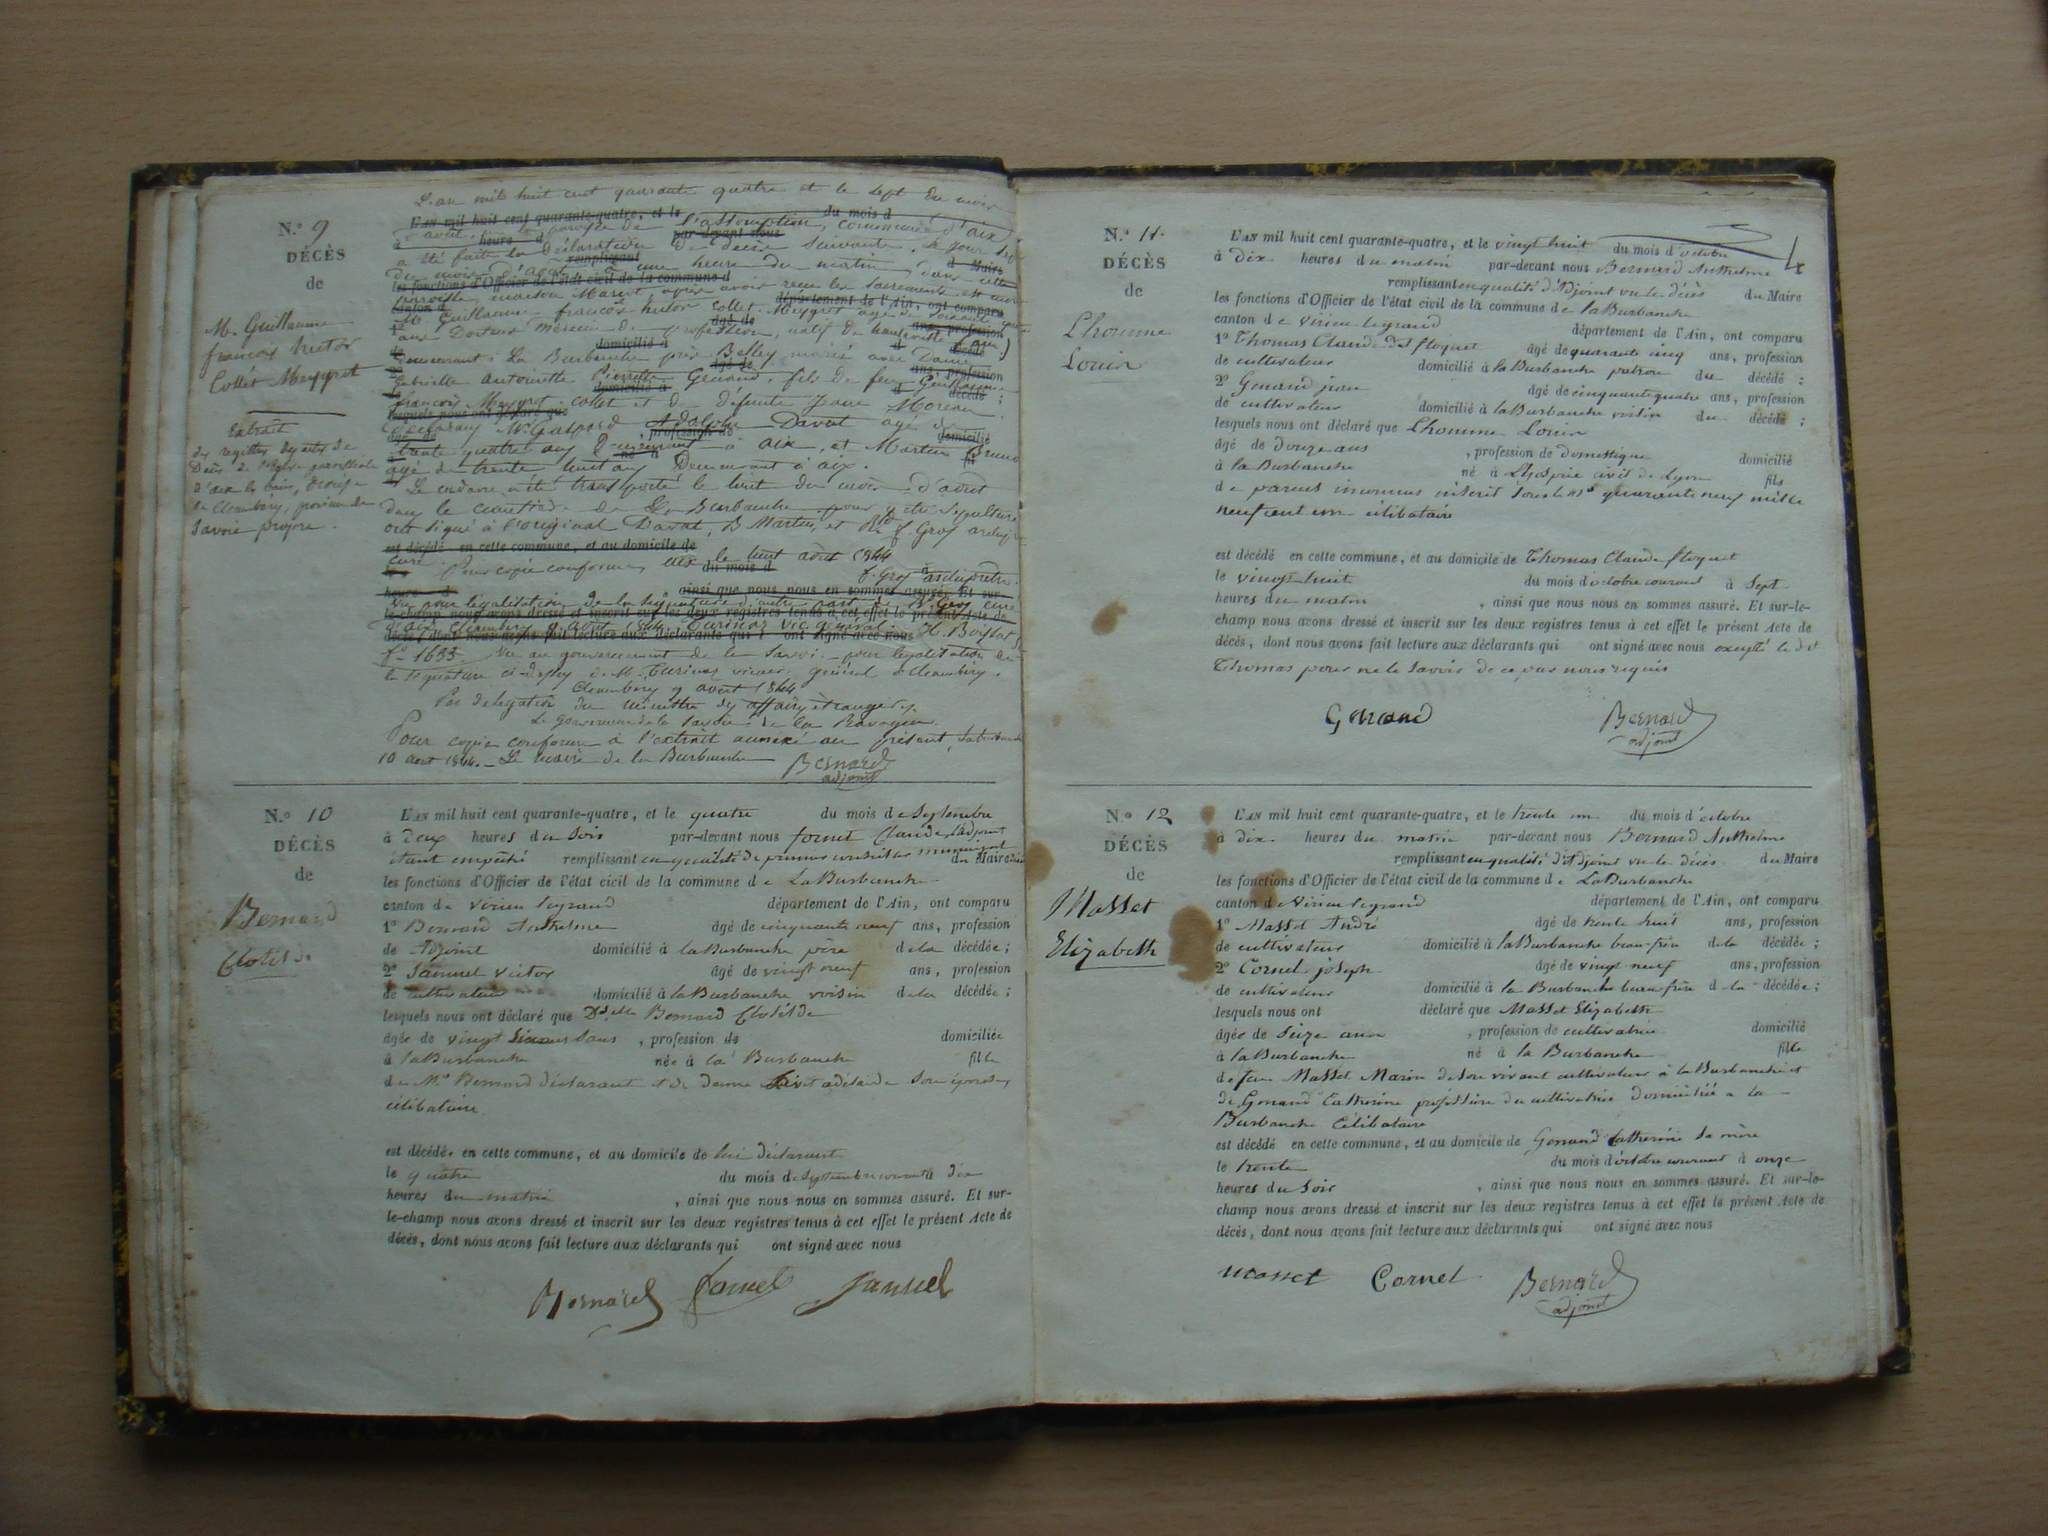 L'an mil huit cent quarante quatre et le sept du mois
L'AN mil huit cent quarante-quatre, et le du mois d
d'août paroisse de l'assomption, commune d'aix
à heure d par-devant nous
a été faite la déclaration de décès suivante. Le jour sept
remplissant d Maire
du mois d'août à une heure du matin, dans cette
les fonctions d'Officier de l'état civil de la commune d
paroisse, maison après avoir reçu les sacrements est mort
canton d département de l'Ain, ont comparu
Mr Guillaume françois hector Collet Meygret agé de
1° âgé de ans, profession
ans Docteur Médecin de profession, natif de (ain)
de domicilié à d décédé
demeurant à La Burbanche près Belley marié avec Dame
2° âgé de ans, profession
Gabrielle antoinette Pierrette Genand, fils de feu Guillaume
de domicilié à d décédé ;
françois Meygret-Collet et de défunte Jane Moreau.
lesquels nous ont déclaré que
Déclarans Mr Gaspard Adolphe Davat agé de
âgé de profession de domicilié
trente quatre ans demeurant à aix, et Martin Bruno
agé de trente huit ans demeurant à aix.
Le cadavre a été transporté le huit du mois d'août
dans le cimetière de La Burbanche pour y être sépulturé
ont signé à l'original Davat, B Martin, et Rd f. Gros archiprêtre
est décédé en cette commune, et au domicile de
curé. Pour copie conforme, aix le huit août 1844
le du mois d f. Gros archiprêtre.
heure d ainsi que nous nous en sommes assuré. Et sur-
Vu pour légalisation de la signature d'autre part de Rd Gros curé
le-champ nous avons dressé et inscrit sur les deux registres tenus à cet effet le présent Acte de
d'aix Chambéry 9 août 1844. Turinaz vic. général. H. Boissat
décès, dont nous avons fait lecture aux déclarants qui ont signé avec nous
f° 1633. Vu au gouvernement de la Savoie pour légalisation de
la signature ci-dessus de M. Turinaz vicaire général à Chambéry.
Chambéry 9 août 1844
Par délégation du ministre des affaires étrangères,
Le gouverneur de la Savoie de la
Pour copie conforme à l'extrait annexé au présent, la burbanche
10 août 1844. Le maire de la Burbanche Bernard
adjoint
N.° 9
DÉCÈS
de
M. Guillaume
françois hector
Collet Meygret
Extrait
des registres des actes de
Décès de l'église paroissiale
d'aix les bains, diocèse
de Chambéry, province de
Savoie propre.
N.° 10
DÉCÈS
de
Bernard
Clotilde
L'AN mil huit cent quarante-quatre, et le quatre du mois de Septembre
à deux heures du soir par-devant nous fornet Claude, l'adjoint
étant empêché remplissant en qualité de premier conseiller municipal du Maire
les fonctions d'Officier de l'état civil de la commune de La Burbanche
canton de virieu legrand département de l'Ain, ont comparu
1° Bernard Anthelme âgé de cinquante neuf ans, profession
de Adjoint domicilié à la Burbanche père de la décédée ;
2° Samuel victor âgé de vingt neuf ans, profession
de cultivateur domicilié à la Burbanche voisin de la décédée ;
lesquels nous ont déclaré que Dlle Bernard Clotilde
âgée de vingt ans , profession de domiciliée
à la Burbanche née à la Burbanche fille
de Mr Bernard déclarant et de dame adelaide son épouse,
célibataire
est décédée en cette commune, et au domicile de lui déclarant
le quatre du mois de septembre courant à dix
heures du matin , ainsi que nous nous en sommes assuré. Et sur-
le-champ nous avons dressé et inscrit sur les deux registres tenus à cet effet le présent Acte de
décès, dont nous avons fait lecture aux déclarants qui ont signé avec nous
Bernard fornet Samuel
N.° 11
DÉCÈS
de
Lhomme
Louis
4
L'AN mil huit cent quarante-quatre, et le vingt huit du mois d'octobre
à dix heures du matin par-devant nous Bernard Anthelme
remplissant en qualité d'Adjoint vu le décès du Maire
les fonctions d'Officier de l'état civil de la commune de la Burbanche
canton de virieu legrand département de l'Ain, ont comparu
1° Thomas Claude dit floquet âgé de quarante cinq ans, profession
de cultivateur domicilié à la Burbanche patron du décédé ;
2° Genand jean âgé de cinquante quatre ans, profession
de cultivateur domicilié à la Burbanche voisin du décédé ;
lesquels nous ont déclaré que Lhomme Louis
âgé de douze ans , profession de domestique domicilié
à la Burbanche né à L'hospice civil de Lyon fils
de parens inconnus inscrit sous le n° quarante neuf mille
neuf cent un célibataire
est décédé en cette commune, et au domicile de Thomas Claude floquet
le vingt huit du mois d'octobre courant à Sept
heures du matin , ainsi que nous nous en sommes assuré. Et sur-le-
champ nous avons dressé et inscrit sur les deux registres tenus à cet effet le présent Acte de
décès, dont nous avons fait lecture aux déclarants qui ont signé avec nous excepté le dit
Thomas pour ne le savoir de ce par nous requis
Genand Bernard
adjoint
N.° 12
DÉCÈS
de
Masset
Elizabeth
L'AN mil huit cent quarante-quatre, et le trente un du mois d'octobre
à dix heures du matin par-devant nous Bernard Anthelme
remplissant en qualité d'Adjoint vu le décès du Maire
les fonctions d'Officier de l'état civil de la commune de La Burbanche
canton de Virieu legrand département de l'Ain, ont comparu
1° Masset André âgé de trente huit ans, profession
de cultivateur domicilié à la Burbanche beau-frère de la décédée ;
2° Cornet joseph âgé de vingt neuf ans, profession
de cultivateur domicilié à la Burbanche beau-frère de la décédée ;
lesquels nous ont déclaré que Masset Elizabeth
âgée de Seize ans , profession de cultivatrice domicilié
à la Burbanche né à la Burbanche fille
de feu Masset Marin de son vivant cultivateur à la Burbanche et
de Genand Catherine profession de cultivatrice domiciliée a la
Burbanche Célibataire
est décédé en cette commune, et au domicile de Genand Catherine sa mère
le trente du mois d'octobre courant à onze
heures du Soir , ainsi que nous nous en sommes assuré. Et sur-le-
champ nous avons dressé et inscrit sur les deux registres tenus à cet effet le présent Acte de
décès, dont nous avons fait lecture aux déclarants qui ont signé avec nous
Masset Cornet Bernard
adjoint